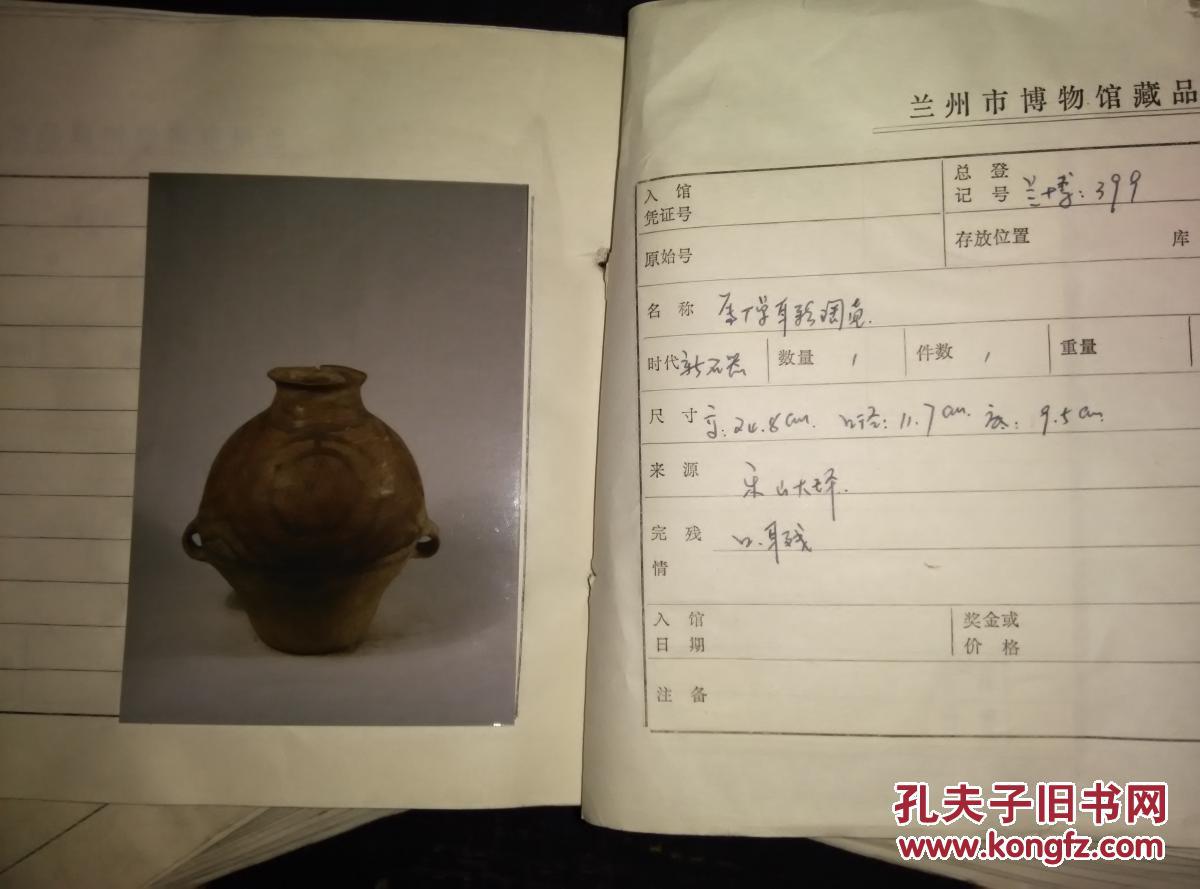 兰州市博物馆藏品
入馆凭证号
总登记号 兰博：399
原始号
存放位置 库
名称 陶
时代 新石器 数量 1 件数 1 重量
尺寸 高：24.8cm. 口径：11.7cm. 底：9.5cm
来源 大坪.
完残情 口.耳残
入馆日期
奖金或价格
注备
孔夫子旧书网
www.kongfz.com